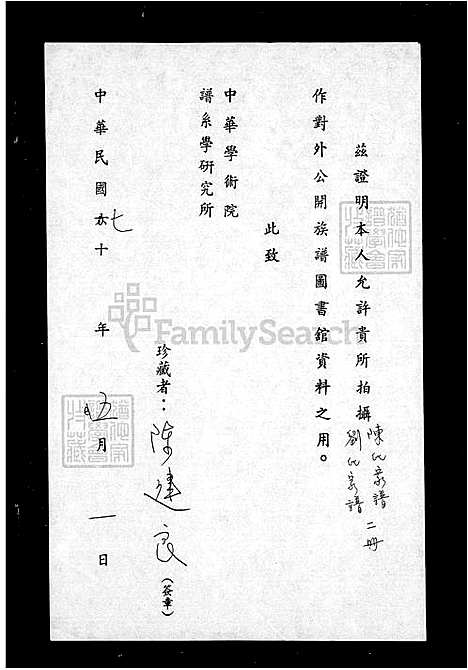 茲證明本人允許貴所拍攝陳氏家譜劉氏家譜二冊
作對外公開族譜圖書館資料之用。
此致
中華學術院
譜系學研究所
珍藏者：陳建良（簽章）
中華民國七十年伍月一日
FamilySearch